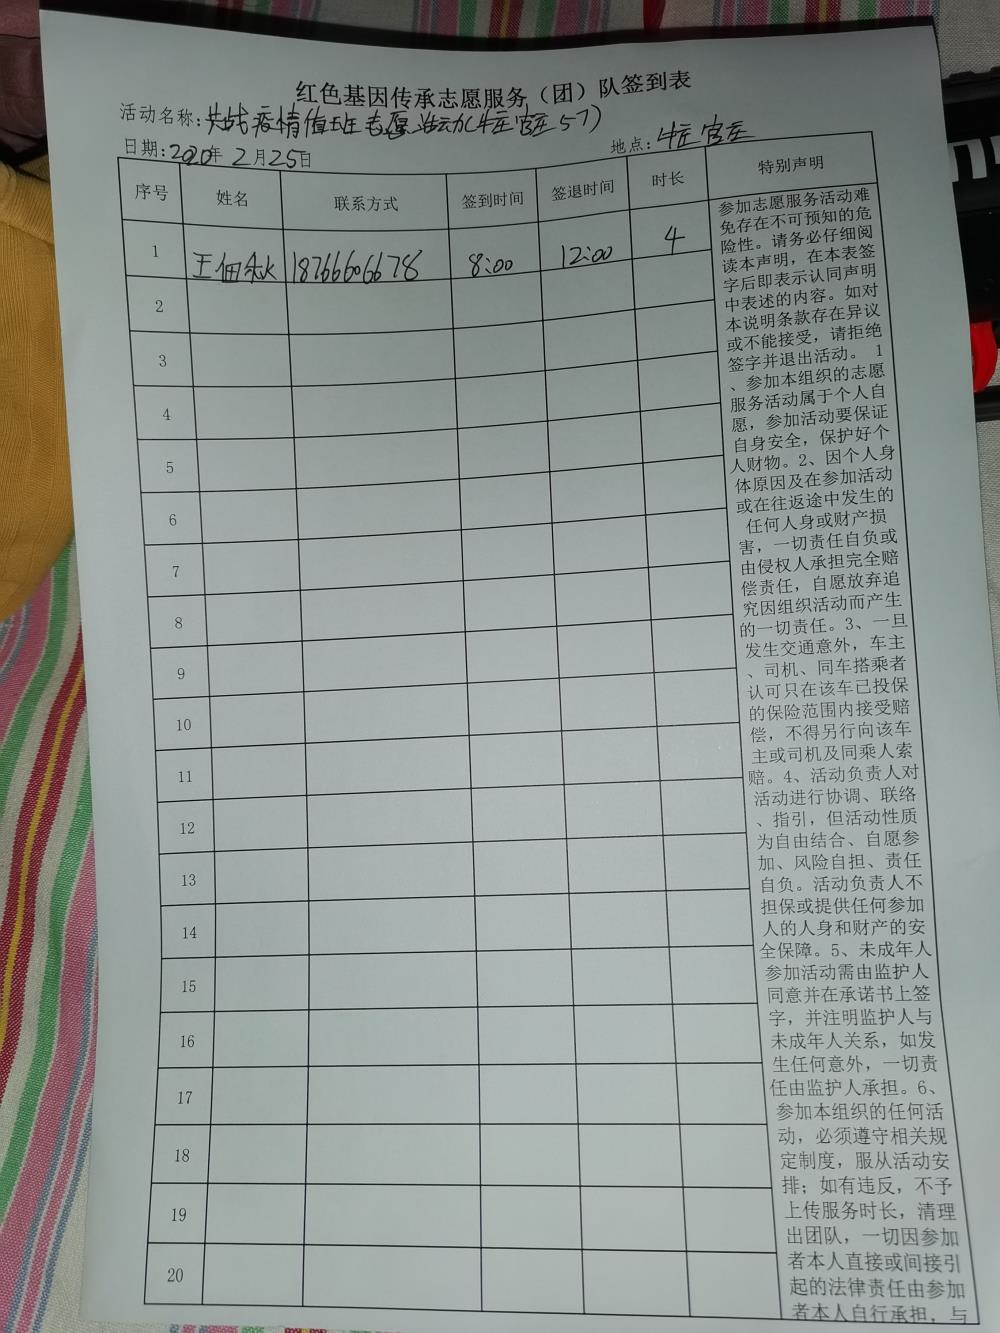 红色基因传承志愿服务（团）队签到表
活动名称：共战疫情值班志愿活动(牛庄官庄57)
日期：2020年2月25日
地点：牛庄官庄
序号 姓名 联系方式 签到时间 签退时间 时长 特别声明
1 王佃秋 18766606678 8:00 12:00 4
2
3
4
5
6
7
8
9
10
11
12
13
14
15
16
17
18
19
20
参加志愿服务活动难
免存在不可预知的危
险性。请务必仔细阅
读本声明，在本表签
字后即表示认同声明
中表述的内容。如对
本说明条款存在异议
或不能接受，请拒绝
签字并退出活动。 1
、参加本组织的志愿
服务活动属于个人自
愿，参加活动要保证
自身安全，保护好个
人财物。2、因个人身
体原因及在参加活动
或在往返途中发生的
任何人身或财产损
害，一切责任自负或
由侵权人承担完全赔
偿责任，自愿放弃追
究因组织活动而产生
的一切责任。3、一旦
发生交通意外，车主
、司机、同车搭乘者
认可只在该车已投保
的保险范围内接受赔
偿，不得另行向该车
主或司机及同乘人索
赔。4、活动负责人对
活动进行协调、联络
、指引，但活动性质
为自由结合、自愿参
加、风险自担、责任
自负。活动负责人不
担保或提供任何参加
人的人身和财产的安
全保障。5、未成年人
参加活动需由监护人
同意并在承诺书上签
字，并注明监护人与
未成年人关系，如发
生任何意外，一切责
任由监护人承担。6、
参加本组织的任何活
动，必须遵守相关规
定制度，服从活动安
排；如有违反，不予
上传服务时长，清理
出团队，一切因参加
者本人直接或间接引
起的法律责任由参加
者本人自行承担，与